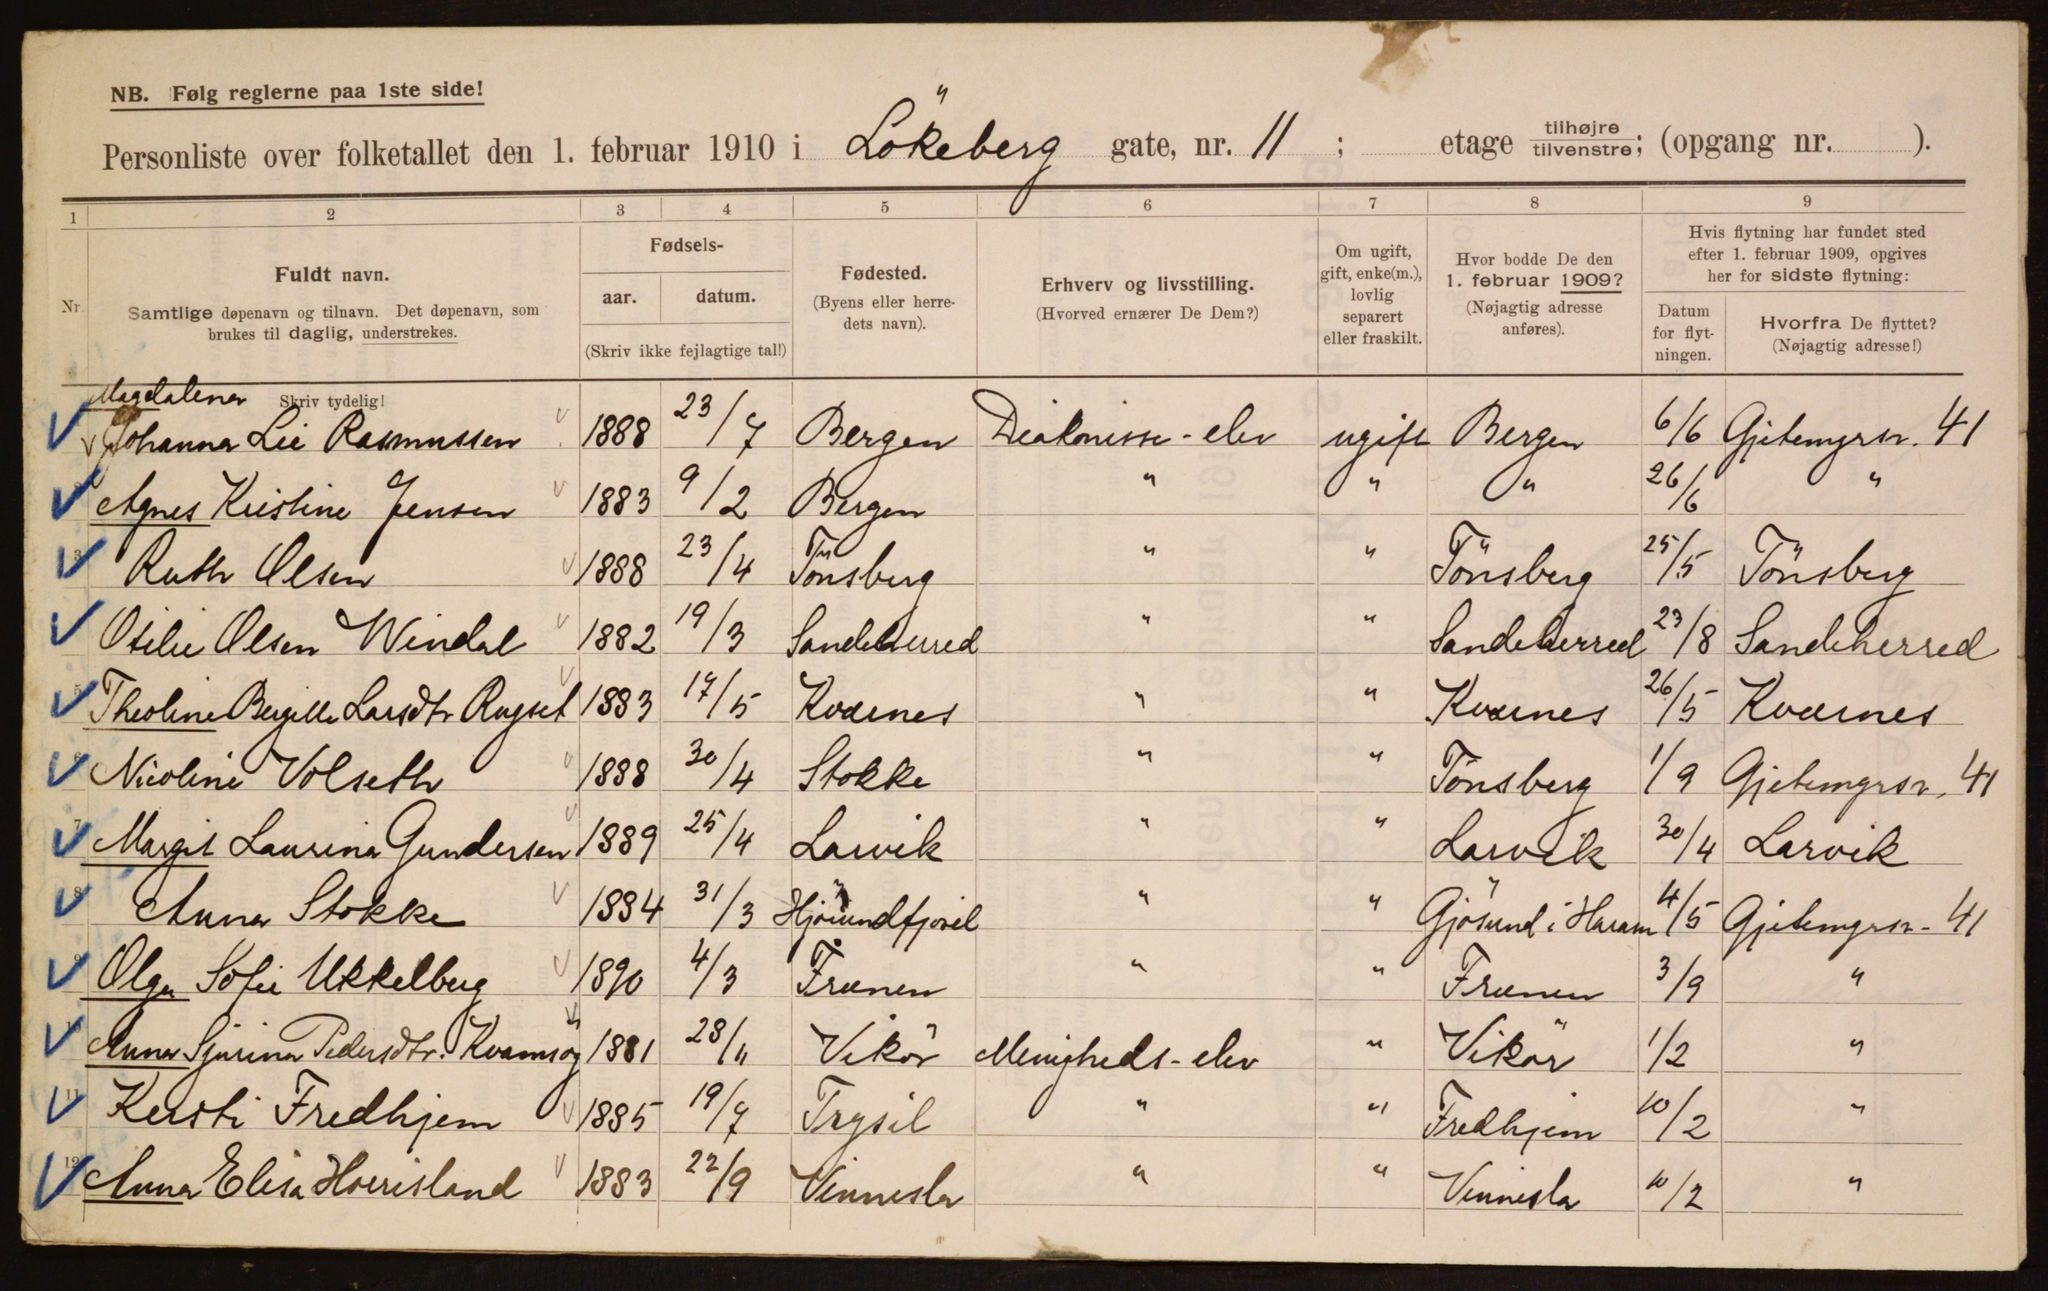 NB. Følg reglerne paa 1ste side!
Personliste over folketallet den 1. februar 1910 i Lökeberg gate, nr. 11 ; etage tilhøjre tilvenstre; (opgang nr. ).
1 2 3 4 5 6 7 8 9
Nr.
Fuldt navn.
Samtlige døpenavn og tilnavn. Det døpenavn, som
brukes til daglig, understrekes.
Skriv tydelig!
Fødsels-
aar. datum.
(Skriv ikke fejlagtige tal!)
Fødested.
(Byens eller herre-
dets navn).
Erhverv og livsstilling.
(Hvorved ernærer De Dem?)
Om ugift,
gift, enke(m.),
lovlig
separert
eller fraskilt.
Hvor bodde De den
1. februar 1909?
(Nøjagtig adresse
anføres).
Hvis flytning har fundet sted
efter 1. februar 1909, opgives
her for sidste flytning:
Datum
for flyt-
ningen.
Hvorfra De flyttet?
(Nøjagtig adresse!)
Magdalena
Johanna Lie Rasmussen 1888 23/7 Bergen Diakonisse-elev ugift Bergen 6/6 Gjetemyrsv. 41
Agnes Kristine Jensen 1883 9/2 Bergen " " " 26/6 "
3 Ruth Olsen 1888 23/4 Tönsberg " " Tönsberg 25/5 Tönsberg
Otilie Olsen Windal 1882 19/3 Sandeherred " " Sandeherred 23/8 Sandeherred
5 Theoline Bergitte Larsdtr Rugset 1883 17/5 Kværnes " " Kværnes 26/5 Kværnes
6 Nicoline Volseth 1888 30/4 Stokke " " Tönsberg 1/9 Gjetemyrsv. 41
7 Margit Laurina Gundersen 1889 25/4 Larvik " " Larvik 30/4 Larvik
8 Anna Stokke 1884 31/3 Hjörundfjord " " Gjösund i Haram 4/5 Gjetemyrsv. 41
9 Olga Sofie Ukkelberg 1890 4/3 Frænen " " Frænen 3/9 "
Anna Sjurina Pedersdtr. Kvamsöy 1881 28/11 Vikör Menigheds-elev " Vikör 1/2 "
11 Kersti Fredhjem 1885 19/7 Trysil " " Fredhjem 10/2 "
12 Anna Elisa Hoverisland 1883 22/9 Vennesla " " Vennesla 10/2 "